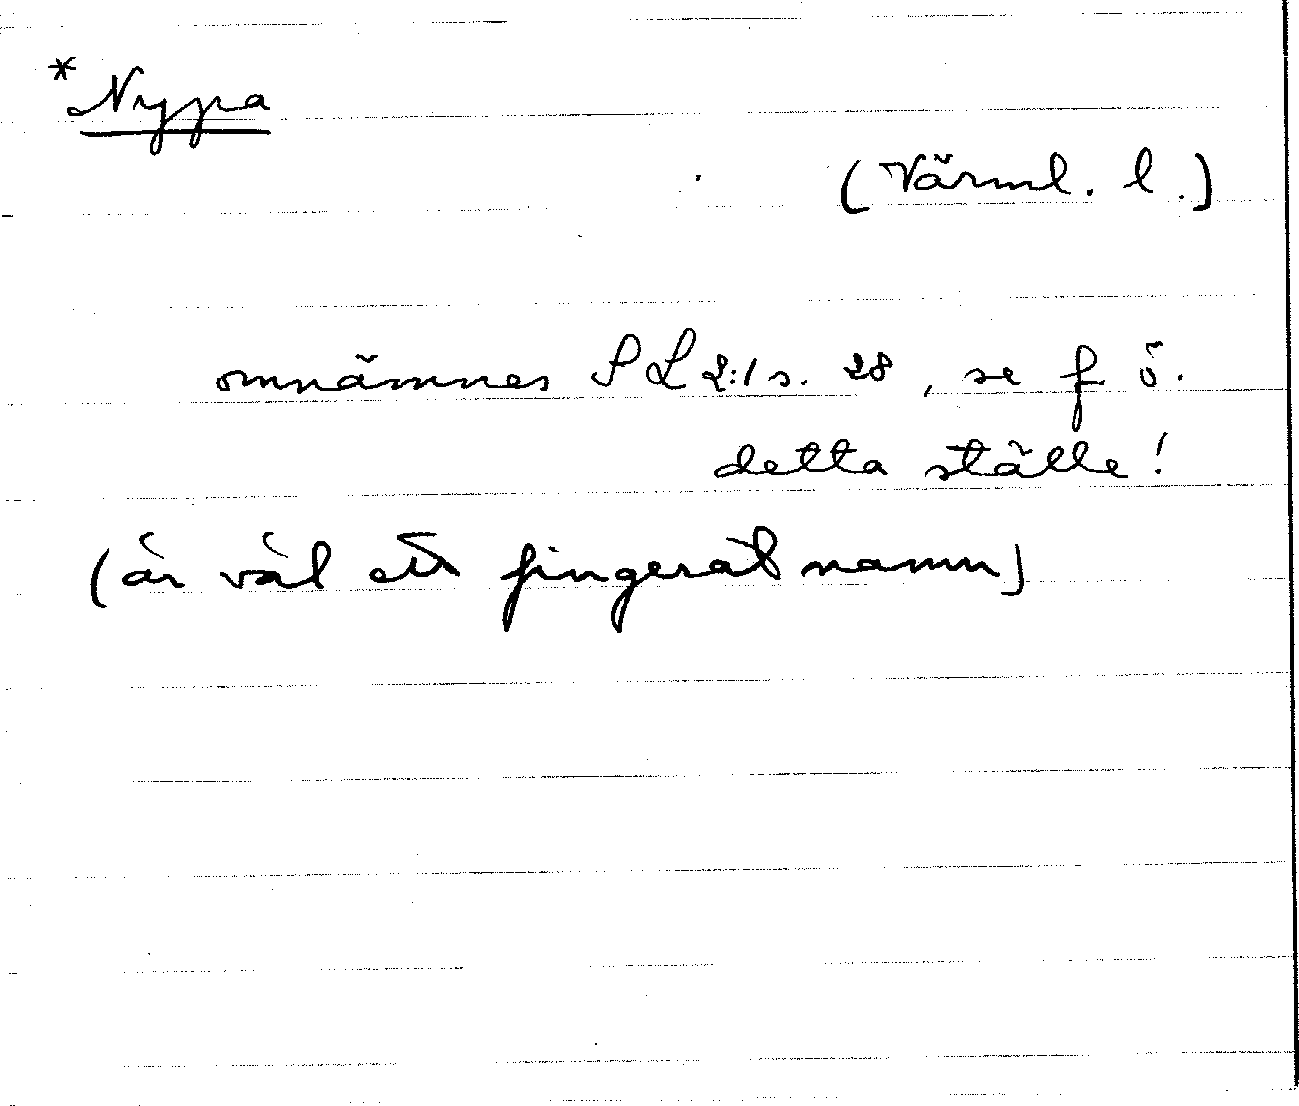 *Nypa
(Värml. l.)
omnämnes SL 2:1 s. 28, se f ö.
detta ställe!
(är väl ett fingerat namn)